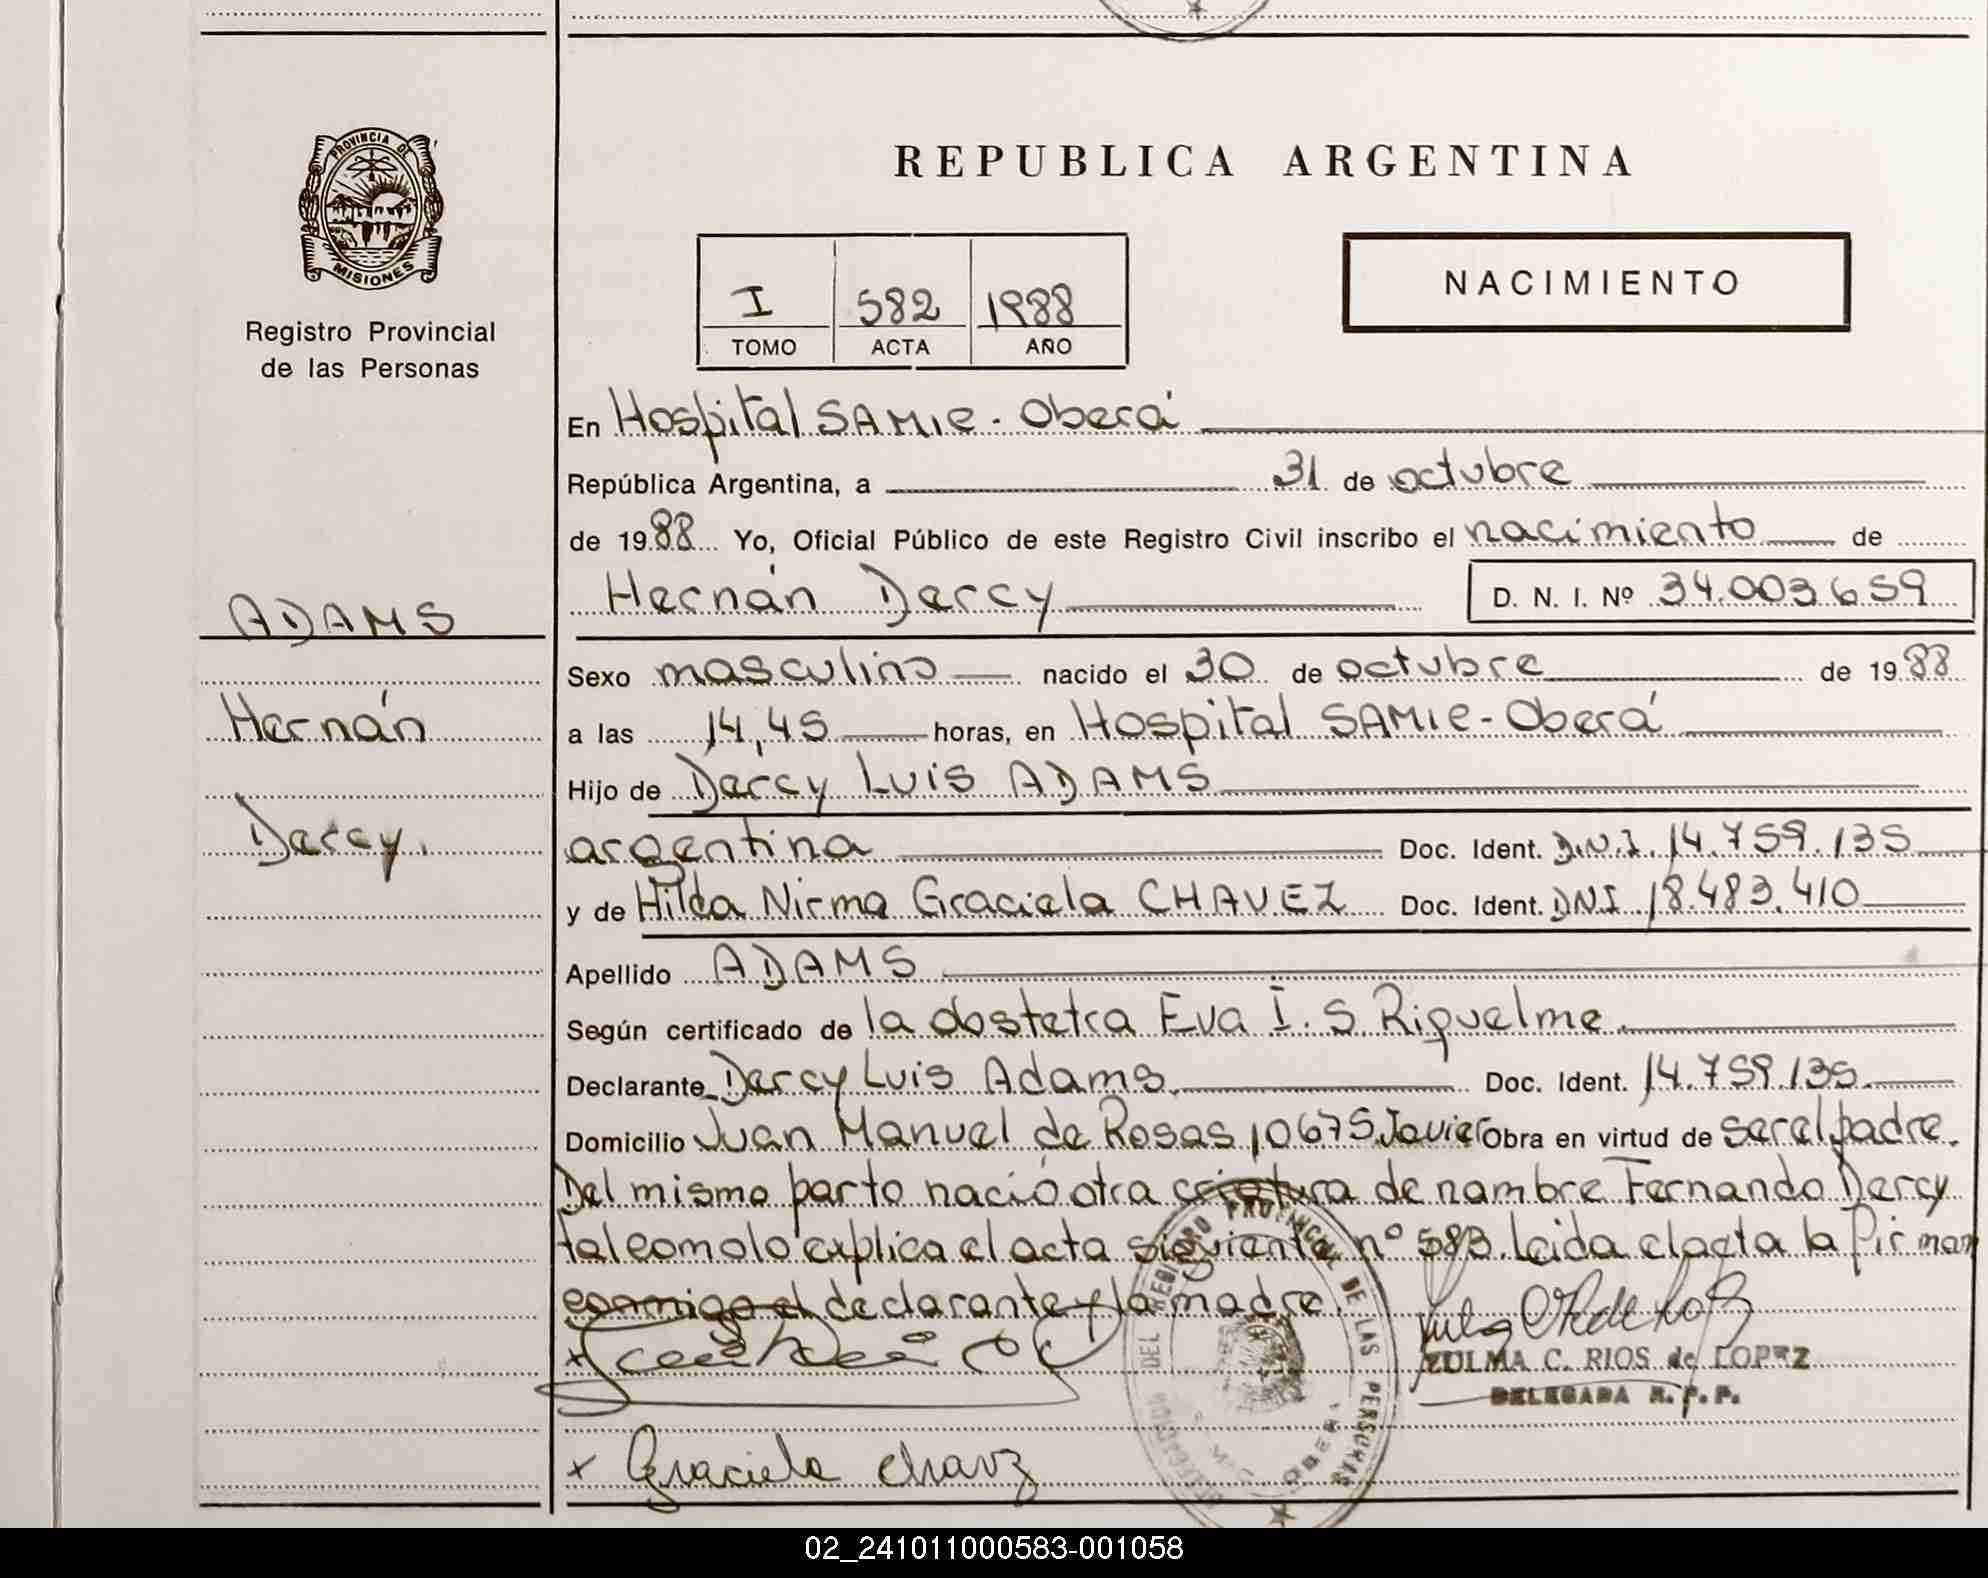 PROVINCIA DE
MISIONES
Registro Provincial
de las Personas
REPUBLICA ARGENTINA
I 582 1988
TOMO ACTA AÑO
NACIMIENTO
En Hospital SAMIC - Oberá
República Argentina, a 31 de octubre
de 1988 Yo, Oficial Público de este Registro Civil inscribo el nacimiento de
Hernán Darcy D. N. I. Nº 34.003.659
ADAMS
Hernán
Darcy.
Sexo masculino nacido el 30 de octubre de 1988
a las 14,45 horas, en Hospital SAMIC - Oberá
Hijo de Darcy Luis ADAMS
argentina Doc. Ident. D.N.I. 14.759.135
y de Hilda Nirma Graciela CHAVEZ Doc. Ident. DNI 18.483.410
Apellido ADAMS
Según certificado de la obstetra Eva I. S Riquelme.
Declarante Darcy Luis Adams. Doc. Ident. 14.759.135.
Domicilio Juan Manuel de Rosas 10675 Javier Obra en virtud de ser el padre.
Del mismo parto nació otra criatura de nombre Fernando Darcy
tal como lo explica el acta siguiente nº 583. Leida el acta la firman
conmigo el declarante y la madre.
ZULMA C. RIOS de LOPEZ
DELEGADA R. P. P.
x Graciela Chavz
DEL REGISTRO PROVINCIAL DE LAS PERSONAS
OBERA
02_241011000583-001058